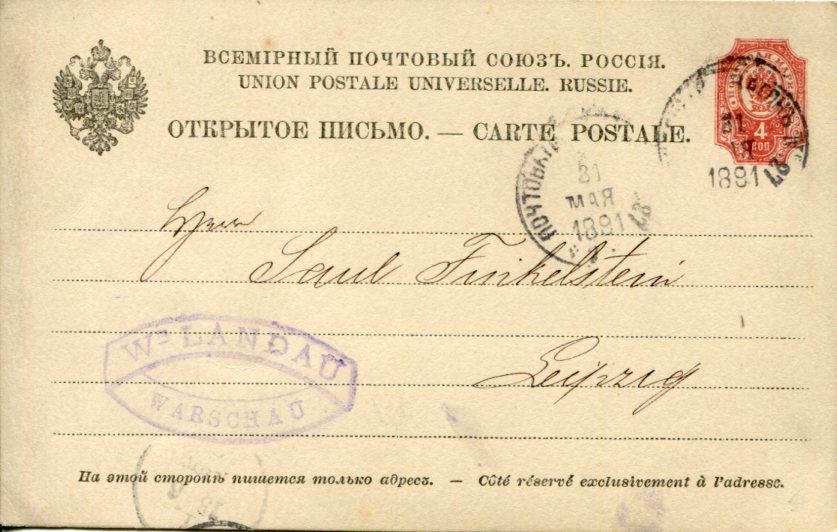 ВСЕМІРНЫЙ ПОЧТОВЫЙ СОЮЗЪ. РОССІЯ.
UNION POSTALE UNIVERSELLE. RUSSIE.
ОТКРЫТОЕ ПИСЬМО. — CARTE POSTALE.
4
КОП
31
1891
ПОЧТОВЫЙ
31
МАЯ
1891
Herrn
Saul Finkelstein
Leipzig
Wᴰ LANDAU
WARSCHAU
На этой сторонѣ пишется только адресъ. — Côté réservé exclusivement à l'adresse.